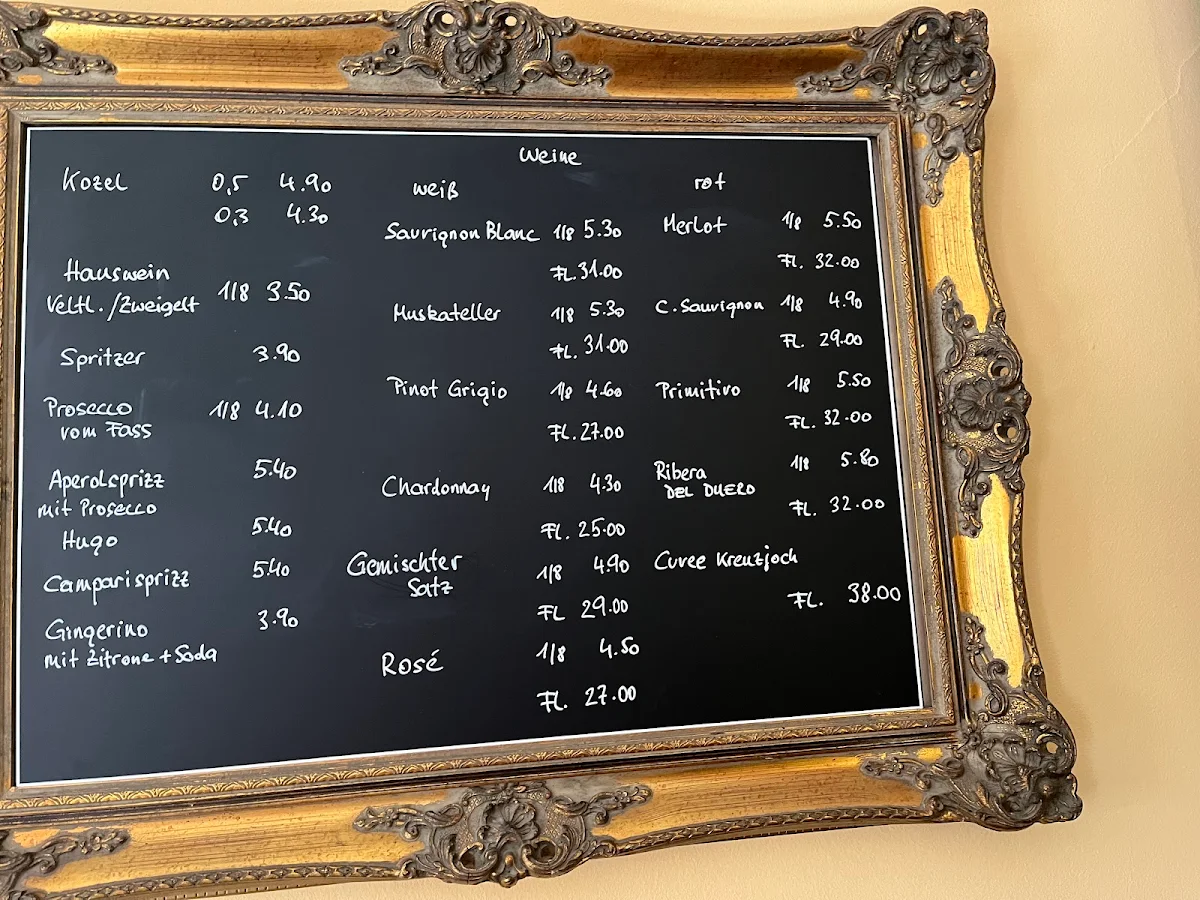 Weine
Kozel 0,5 4.90
0,3 4.30
Hauswein
Veltl./Zweigelt 1/8 3.50
Spritzer 3.90
Prosecco 1/8 4.10
vom Fass
Aperolsprizz 5.40
mit Prosecco
Hugo 5.40
Camparisprizz 5.40
Gingerino 3.90
mit Zitrone + Soda
weiß
Sauvignon Blanc 1/8 5.30
FL. 31.00
Muskateller 1/8 5.30
FL. 31.00
Pinot Grigio 1/8 4.60
FL. 27.00
Chardonnay 1/8 4.30
FL. 25.00
Gemischter 1/8 4.90
Satz
FL 29.00
Rosé 1/8 4.50
FL. 27.00
rot
Merlot 1/8 5.50
FL. 32.00
C. Sauvignon 1/8 4.90
FL. 29.00
Primitivo 1/8 5.50
FL. 32.00
Ribera 1/8 5.80
DEL DUERO
FL. 32.00
Cuvee Kreuzjoch
FL. 38.00